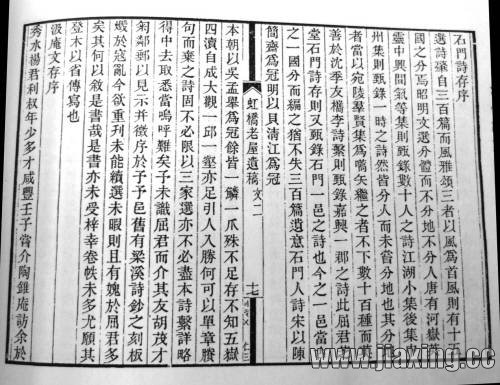 石門詩存序
選詩肇自三百篇而風雅頌三者以風爲首風則有十五
國之分焉昭明文選分體而不分地不分人唐有河嶽英
靈中興間氣等集則甄錄數十人之詩江湖小集後集睦
州集則甄錄一時之詩然皆分人而未嘗分地也其分地
者當以宛陵羣賢集爲嚆矢繼之者不下數十百種而莫
善於沈季友檇李詩繫則甄錄嘉興一郡之詩此屈君
堂石門詩存則又甄錄石門一邑之詩也今之一邑當古
之一國分而編之猶不失三百篇遺意石門人詩宋以陳
簡齋爲冠明以貝清江爲冠
虹橋老屋遺稿 文二 十七
本朝以吳孟舉爲冠餘皆一鱗一爪殊不足存不知五嶽
四瀆自成大觀一邱一壑亦足引人入勝何可以單章賸
句而棄之詩固不必限以三家選亦不必盡本詩繫詳略
得中去取悉當嗚呼難矣予未識屈君而介其友胡茂才
匊鄰郵以見示并徵序於予予邑舊有梁溪詩鈔之刻板
燬於寇亂今欲重刋未能續選未暇則且有媿於屈君多
矣其何以敘是書哉是書亦未受梓幸卷帙未多尤願其
登木以省傳寫也
汲庵文存序
秀水楊君利叔年少多才咸豐壬子嘗介陶錐庵訪余於
www.jiaxing.cc